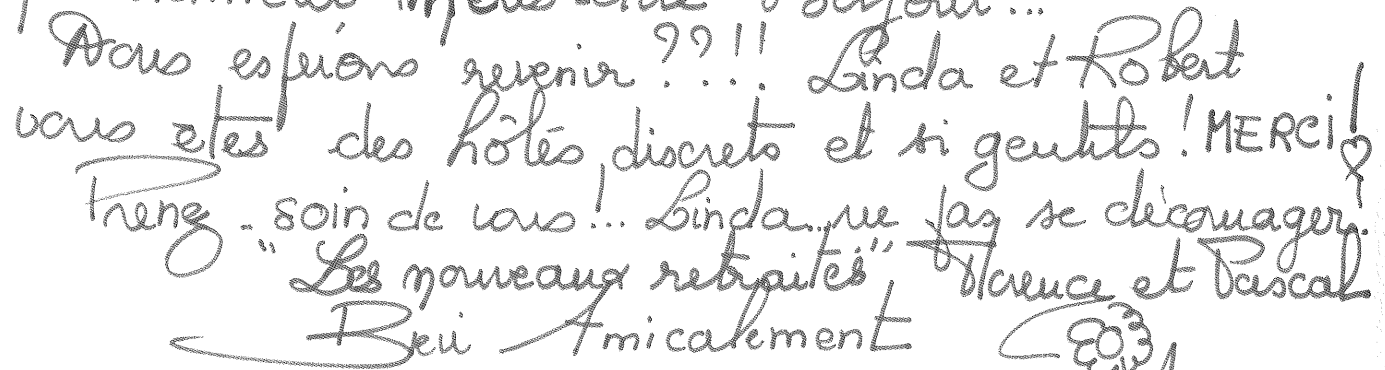 Nous espérions revenir ??!! Linda et Robert
vous êtes des hôtes discrets et si gentils ! MERCI !
Prenez soin de vous !.. Linda.. ne pas se décourager.
"Les nouveaux retraités" Florence et Pascal
Bien Amicalement